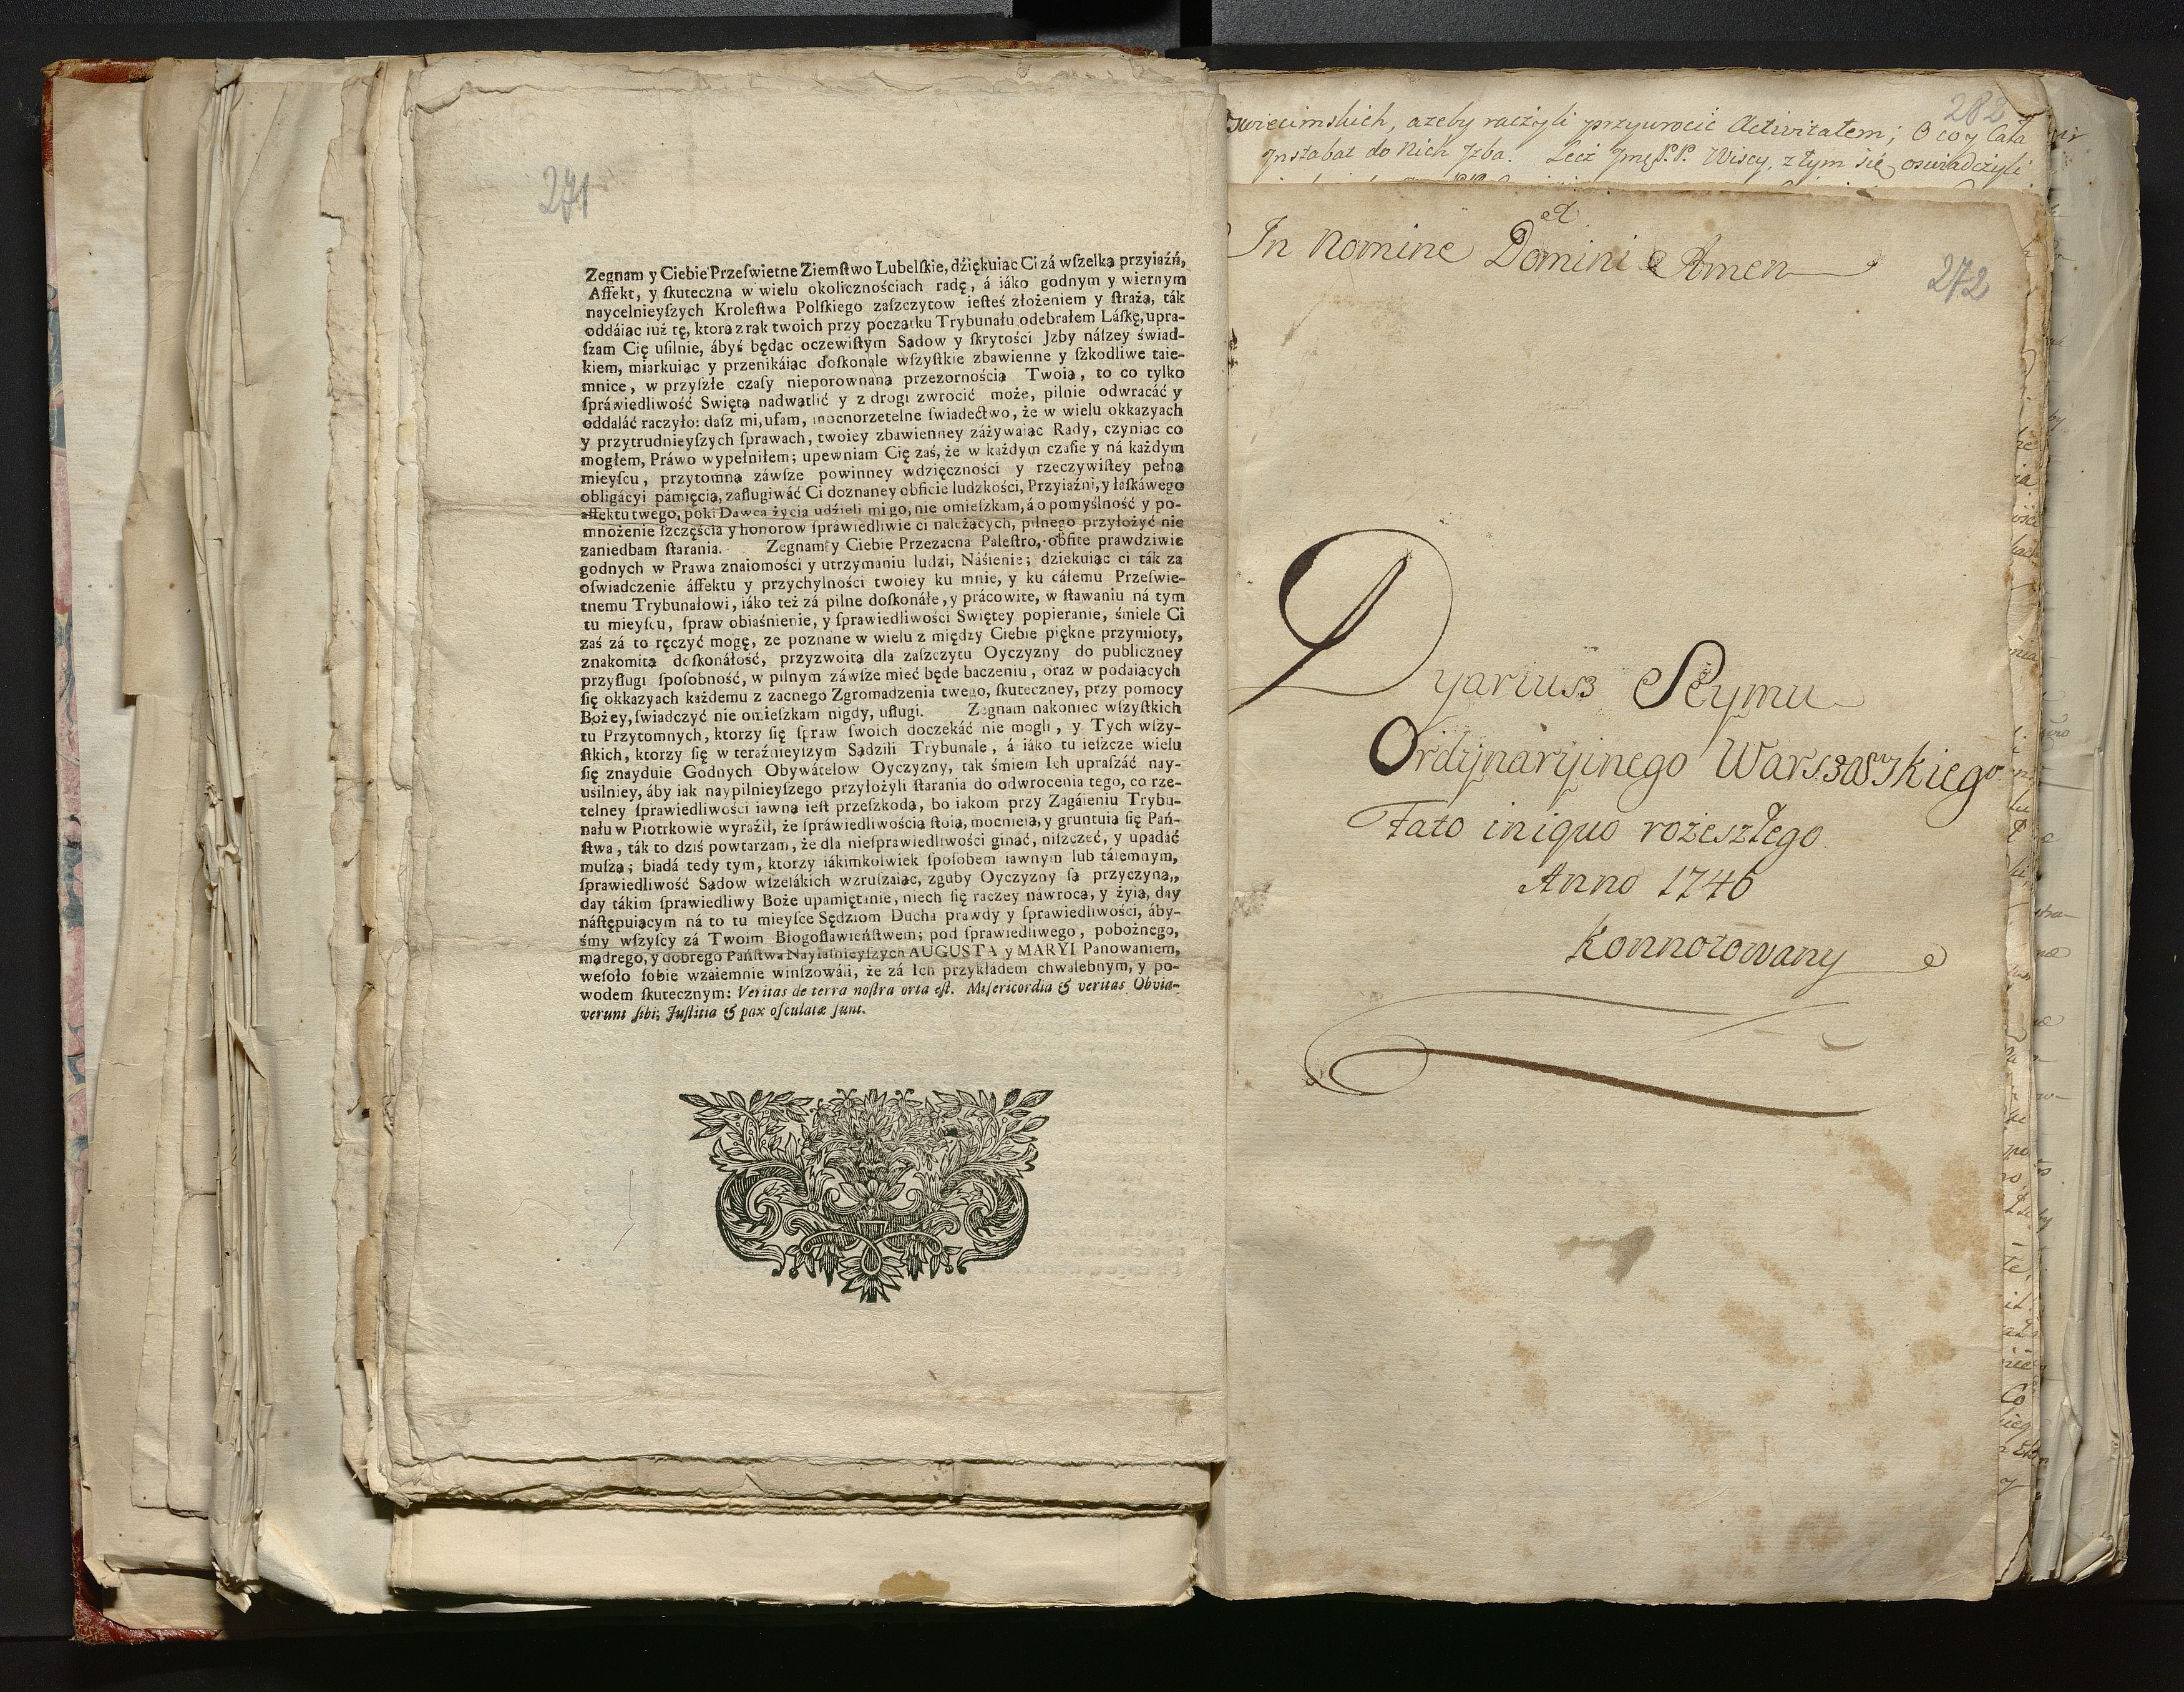 271
Zegnam y Ciebie Przeſwietne Ziemſtwo Lubelſkie, dźiękuiąc Ci zá wſzelką przyiaźń,
Affekt, y ſkuteczną w wielu okolicznościach radę, á iáko godnym y wiernym
naycelnieyſzych Kroleſtwa Polſkiego zaſzczytow ieſteś złożeniem y ſtrażą, ták
oddáiąc iuż tę, ktorą z rąk twoich przy początku Trybunału odebrałem Láſkę, upra-
ſzam Cię uſilnie, ábyś będąc oczewiſtym Sądow y ſkrytości Jzby náſzey świad-
kiem, miarkuiąc y przenikáiąc doſkonale wſzyſtkie zbawienne y ſzkodliwe taie-
mnice, w przyſzłe czaſy nieporownaną przezornością Twoią, to co tylko
ſpráwiedliwość Swiętą nadwątlić y z drogi zwrocić może, pilnie odwracáć y
oddaláć raczyło: daſz mi, ufam, mocno rzetelne ſwiadectwo, że w wielu okkazyach
y przytrudnieyſzych ſprawach, twoiey zbawienney záżywaiąc Rady, czyniąc co
mogłem, Práwo wypełniłem; upewniam Cię zaś, że w każdym czaſie y ná każdym
mieyſcu, przytomną záwſze powinney wdzięczności y rzeczywiſtey pełną
obligácyi pámięcią, zaſługiwáć Ci doznaney obficie ludzkości, Przyiaźni, y łaſkáwego
affektu twego, poki Dawca życia udźieli mi go, nie omieſzkam, á o pomyślność y po-
mnożenie ſzczęścia y honorow ſpráwiedliwie ci należących, pilnego przyłożyć nie
zaniedbam ſtarania. Zegnam y Ciebie Przezacna Paleſtro, obfite prawdziwie
godnych w Prawa znaiomości y utrzymaniu ludzi, Náśienie; dziekuiąc ci ták za
oſwiadczenie áffektu y przychylności twoiey ku mnie, y ku cáłemu Przeſwie-
tnemu Trybunałowi, iáko też zá pilne doſkonáłe, y prácowite, w ſtawaniu ná tym
tu mieyſcu, ſpraw obiaśnienie, y ſprawiedliwości Swiętey popieranie, śmiele Ci
zaś zá to ręczyć mogę, ze poznane w wielu z między Ciebie piękne przymioty,
znakomitą doſkonáłość, przyzwoitą dla zaſzczytu Oyczyzny do publiczney
przyſługi ſpoſobność, w pilnym záwſze mieć będe baczeniu, oraz w podaiących
się okkazyach każdemu z zacnego Zgromadzenia twego, ſkuteczney, przy pomocy
Bożey, ſwiadczyć nie omieſzkam nigdy, uſługi. Zegnam nakoniec wſzyſtkich
tu Przytomnych, ktorzy ſię ſpraw ſwoich doczekáć nie mogli, y Tych wſzy-
ſtkich, ktorzy ſię w teráźnieyſzym Sądzili Trybunale, á iáko tu ieſzcze wielu
ſię znayduie Godnych Obywátelow Oyczyzny, tak śmiem Ich upraſzáć nay-
uśilniey, áby iak naypilnieyſzego przyłożyli ſtarania do odwrocenia tego, co rze-
telney ſprawiedliwości iawną ieſt przeſzkodą, bo iakom przy Zagáieniu Trybu-
nału w Piotrkowie wyraźił, że ſpráwiedliwością ſtoią, mocnieią, y gruntuią ſię Pań-
ſtwa, ták to dziś powtarzam, że dla nieſprawiedliwości ginąć, niſzczeć, y upadáć
muſzą; biadá tedy tym, ktorzy iákimkolwiek ſpoſobem iawnym lub táiemnym,
ſprawiedliwość Sądow wſzelákich wzruſzaiąc, zguby Oyczyzny ſą przyczyną,,
day tákim ſprawiedliwy Boże upamiętanie, niech ſię raczey náwrocą, y żyią, day
náſtępuiącym ná to tu mieyſce Sędziom Ducha prawdy y ſprawiedliwości, áby-
śmy wſzyſcy zá Twoim Błogoſławieńſtwem; pod ſprawiedliwego, pobożnego,
mądrego, y dobrego Páńſtwa Nayiaſnieyſzych AUGUSTA y MARYI Panowaniem,
weſoło ſobie wzaiemnie winſzowáli, że zá Ich przykładem chwalebnym, y po-
wodem ſkutecznym: Veritas de terra noſtra orta eſt. Miſericordia & veritas Obvia-
verunt ſibi; Juſtitia & pax oſculatæ ſunt.
282
zwiecimskich, azeby raczyli przywrocić Activitatem; O co y Cała
Jnstabat do Nich Jzba. Lecz Jmę P.P. Wiscy, z tym się oswiadczyli
In Nomine Domini Amen
272
Dyariusz Seymu
Ordynaryinego Warszawskiego
Fato iniquo rozeszłego
Anno 1746
Konnotowany